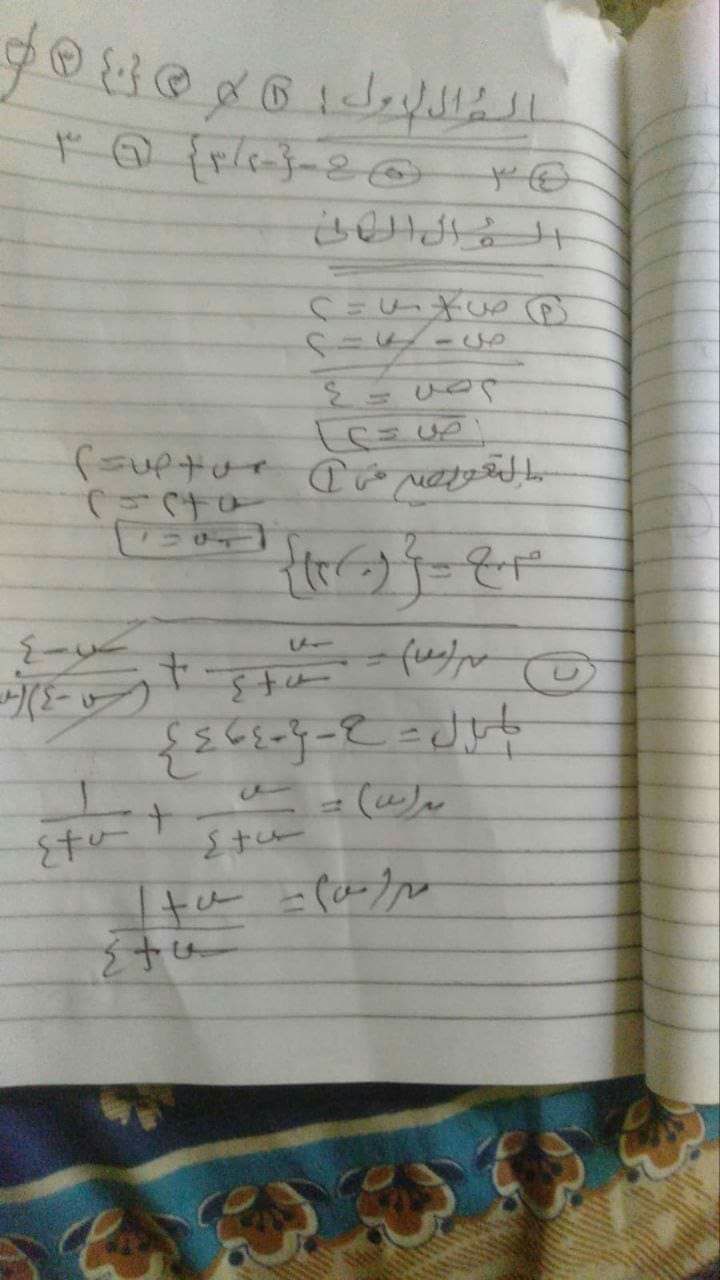 السؤال الأول: ① ∅ ② {٠} ③ ∅
④ ٣ ⑤ ح - {-٢، ٣} ⑥ ٣
السؤال الثاني
Ⓟ ص + س = ٢
ص - س = ٢
٢ص = ٤
ص = ٢
بالتعويض في ① س + ص = ٢
س + ٢ = ٢
س = ٠
م.ح = {(٠، ٢)}
ب ن(س) = س / س + ٤ + س - ٤ / (س - ٤)(س
المجال = ح - {-٤، ٤}
ن(س) = س / س + ٤ + ١ / س + ٤
ن(س) = س + ١ / س + ٤